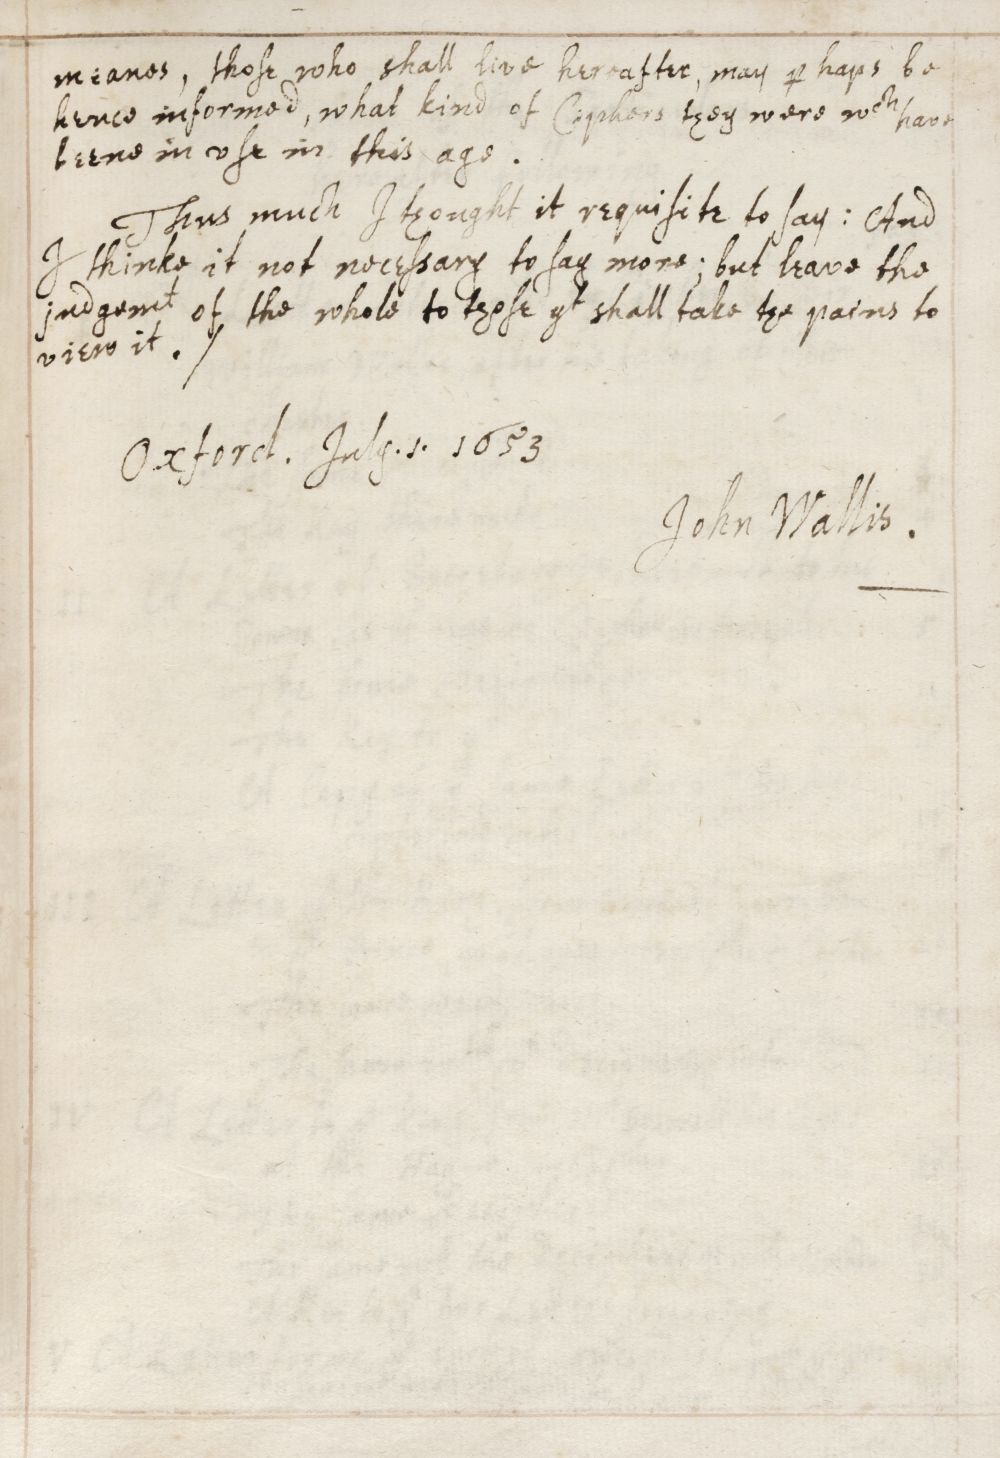 meanes, those who shall live hereafter, may p haps be
hence informed, what kind of Ciphers they were wch have
beene in use in this age.
Thus much I thought it requisite to say: And
I thinke it not necessary to say more; but leave the
judgemt of the whole to those yt shall take the pains to
view it. /
Oxford. July. 1. 1653
John Wallis.